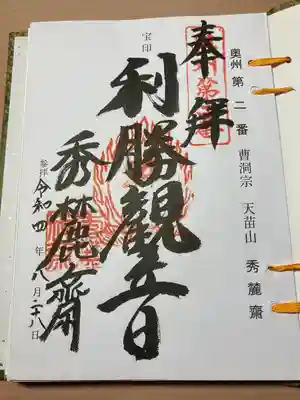 奥州 第二番 曹洞宗 天苗山 秀麓齋
奉拝
宝印
利勝觀音
秀麓齋
参拝 令和四年八月二十八日